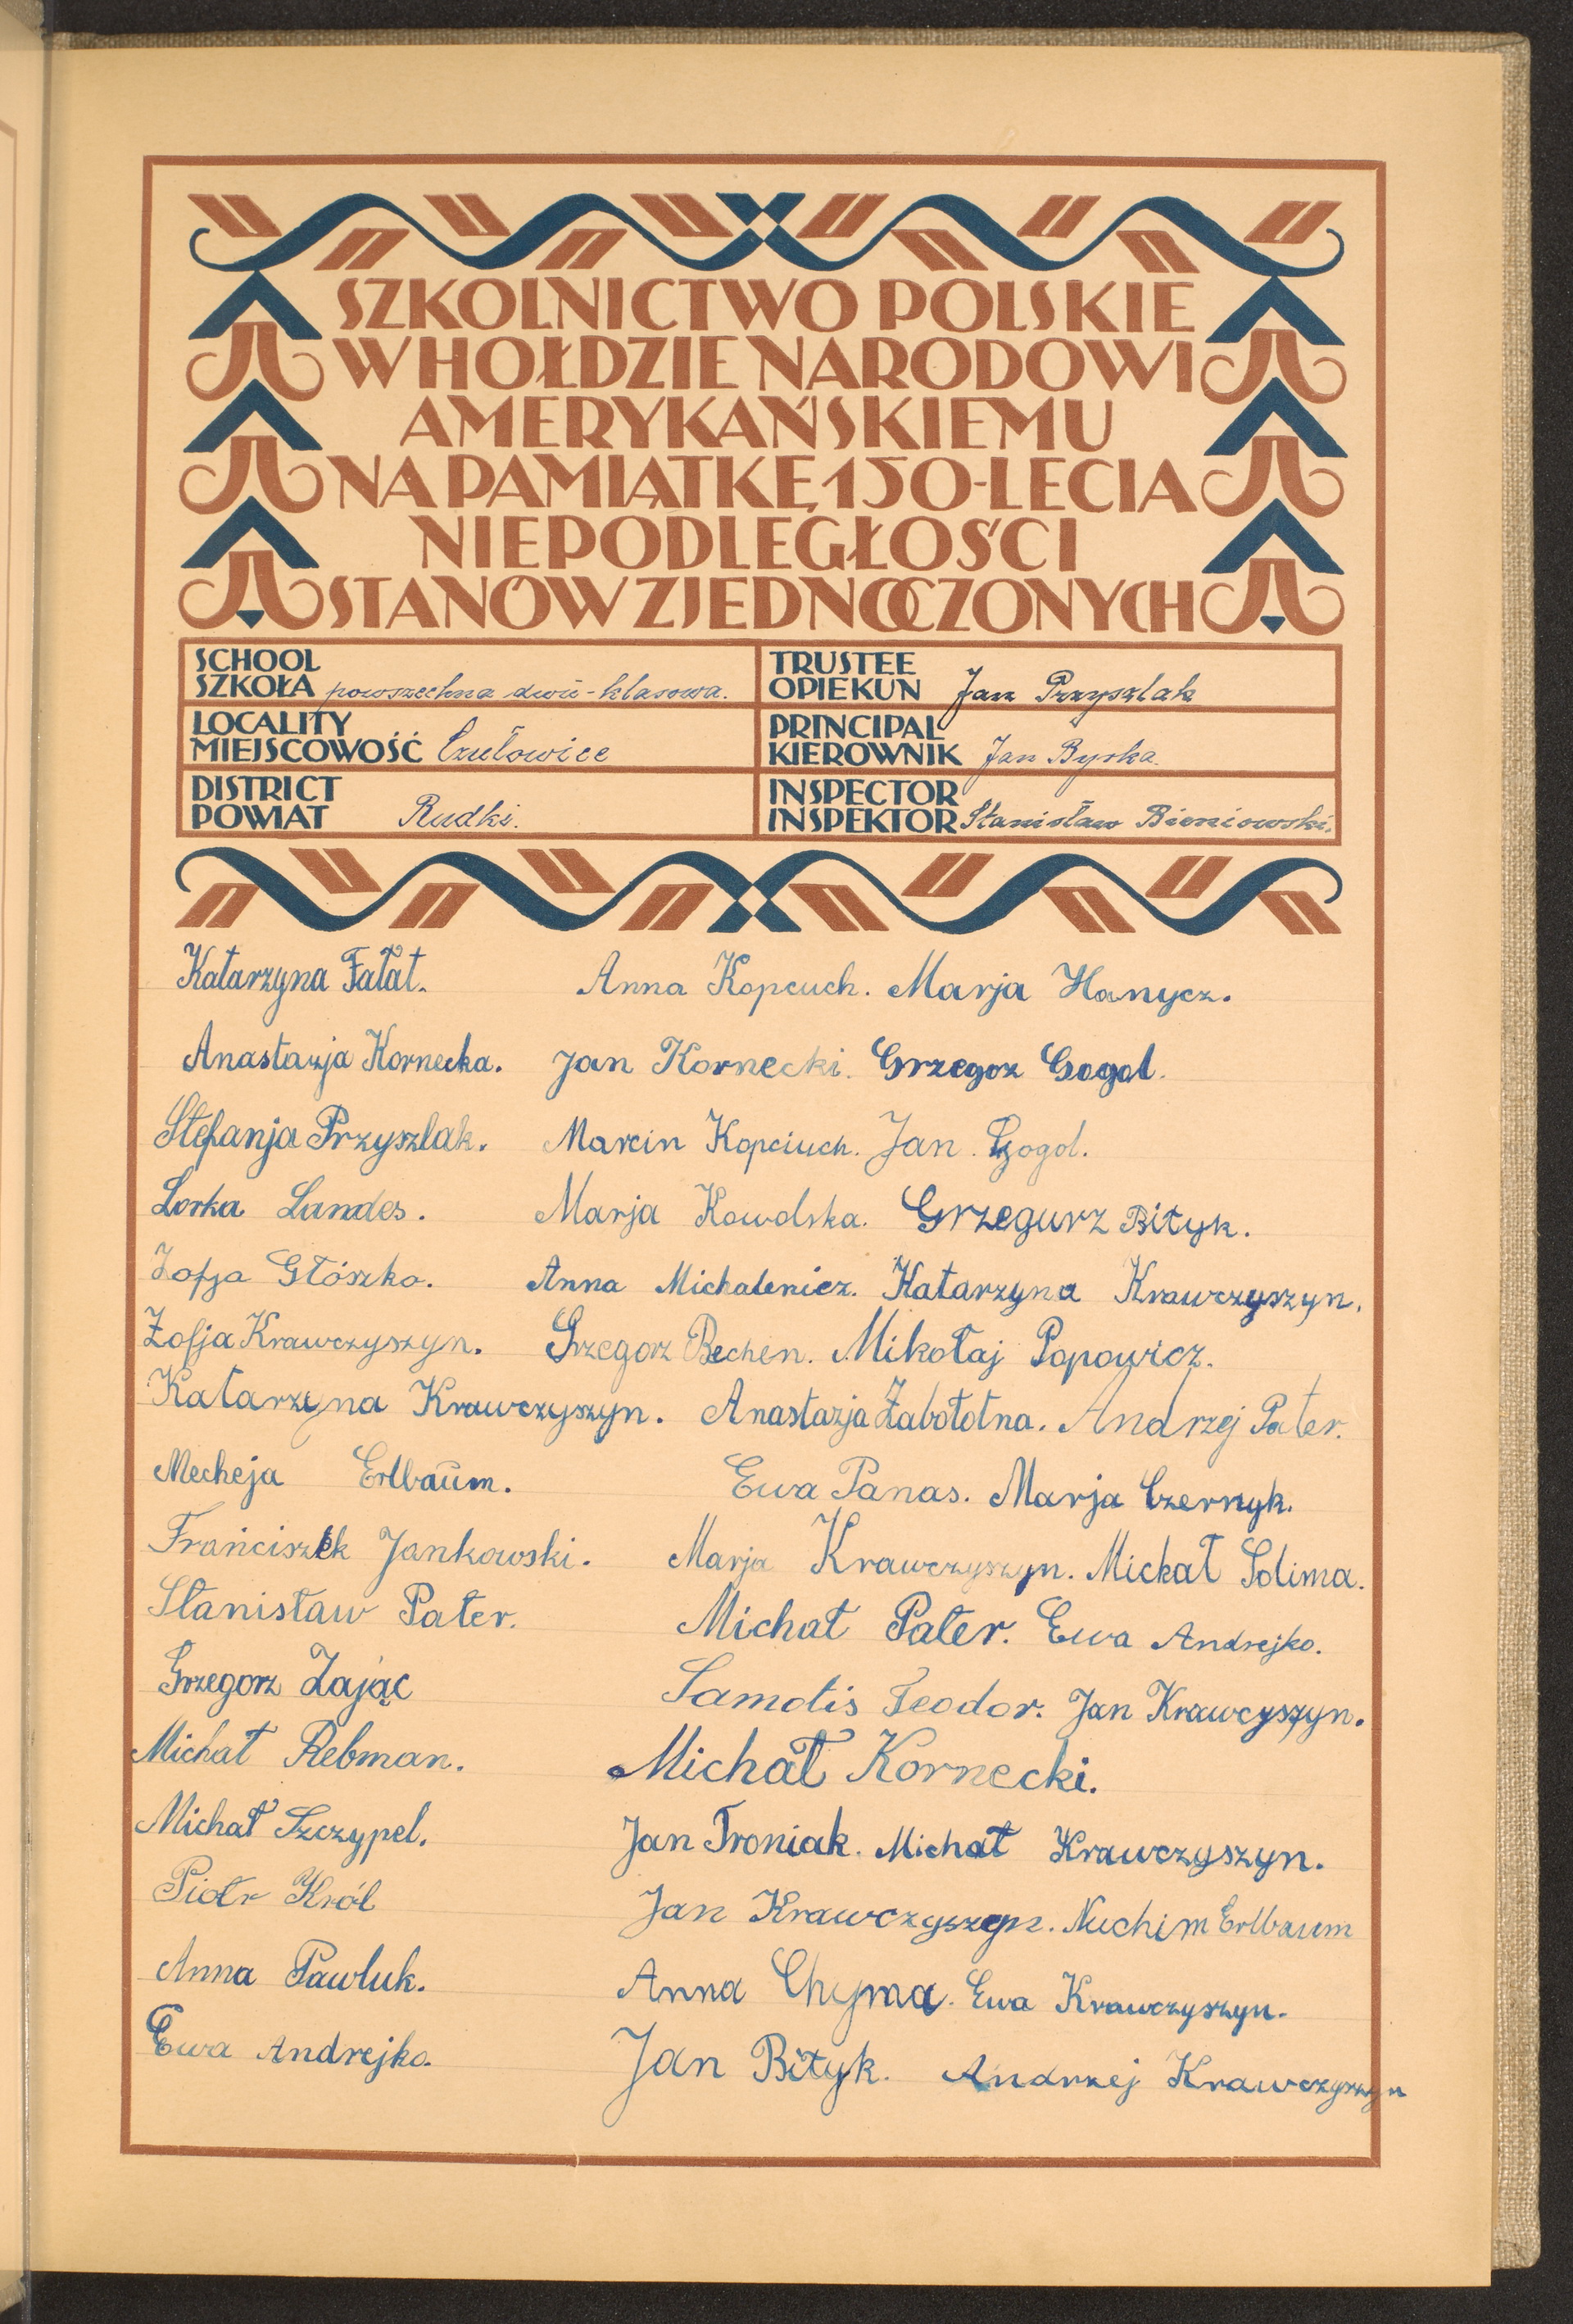 SZKOLNICTWO POLSKIE
W HOŁDZIE NARODOWI
AMERYKAŃSKIEMU
NA PAMIĄTKĘ 150-LECIA
NIEPODLEGŁOŚCI
STANÓW ZJEDNOCZONYCH
SCHOOL
SZKOŁA powszechna dwu-klasowa.
TRUSTEE
OPIEKUN Jan Przyszlak
LOCALITY
MIEJSCOWOŚĆ Czułowice
PRINCIPAL
KIEROWNIK Jan Byrka.
DISTRICT
POWIAT Rudki.
INSPECTOR
INSPEKTOR Stanisław Bieniowski.
Katarzyna Fałat. Anna Kopcuch. Marja Hanycz.
Anastazja Kornecka. Jan Kornecki. Grzegoz Gogol.
Stefanja Przyszlak. Marcin Kopciuch. Jan Gogol.
Lorka Landes. Marja Kowolska. Grzegurz Bityk.
Zofja Głószko. Anna Michalenicz. Katarzyna Krawczyszyn.
Zofja Krawczyszyn. Grzegorz Bechen. Mikołaj Popowicz.
Katarzyna Krawczyszyn. Anastazja Zabołotna. Andrzej Pater.
Mecheja Erlbaŭm. Ewa Panas. Marja Czernyk.
Frańciszek Jankowski. Marja Krawczyszyn. Mickał Solima.
Stanisław Pater. Michał Pater. Ewa Andrejko.
Grzegorz Zając Samotis Teodor. Jan Krawcyszyn.
Michał Rebman. Michał Kornecki.
Michał Szczypel. Jan Troniak. Michał Krawczyszyn.
Piotr Król Jan Krawczyszyn. Nuchim Erlbaum
Anna Pawluk. Anna Chyma. Ewa Krawczyszyn.
Ewa Andrejko. Jan Bityk. Andrzej Krawczyszyn